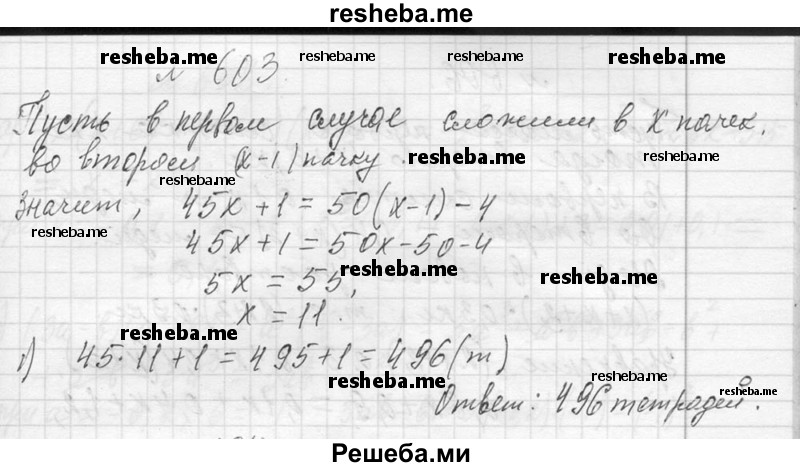 resheba.me
resheba.me resheba.me resheba.me resheba.me
№ 603.
Пусть в первом случае сложили в x пачек,
во втором (x-1) пачку. resheba.me resheba.me
resheba.me
Значит, 45x+1=50(x-1)-4
resheba.me
45x+1=50x-50-4
5x=55, resheba.me resheba.me
x=11.
resheba.me
1) 45·11+1=495+1=496(т)
resheba.me resheba.me resheba.me
Ответ: 496 тетрадей.
Решеба.ми